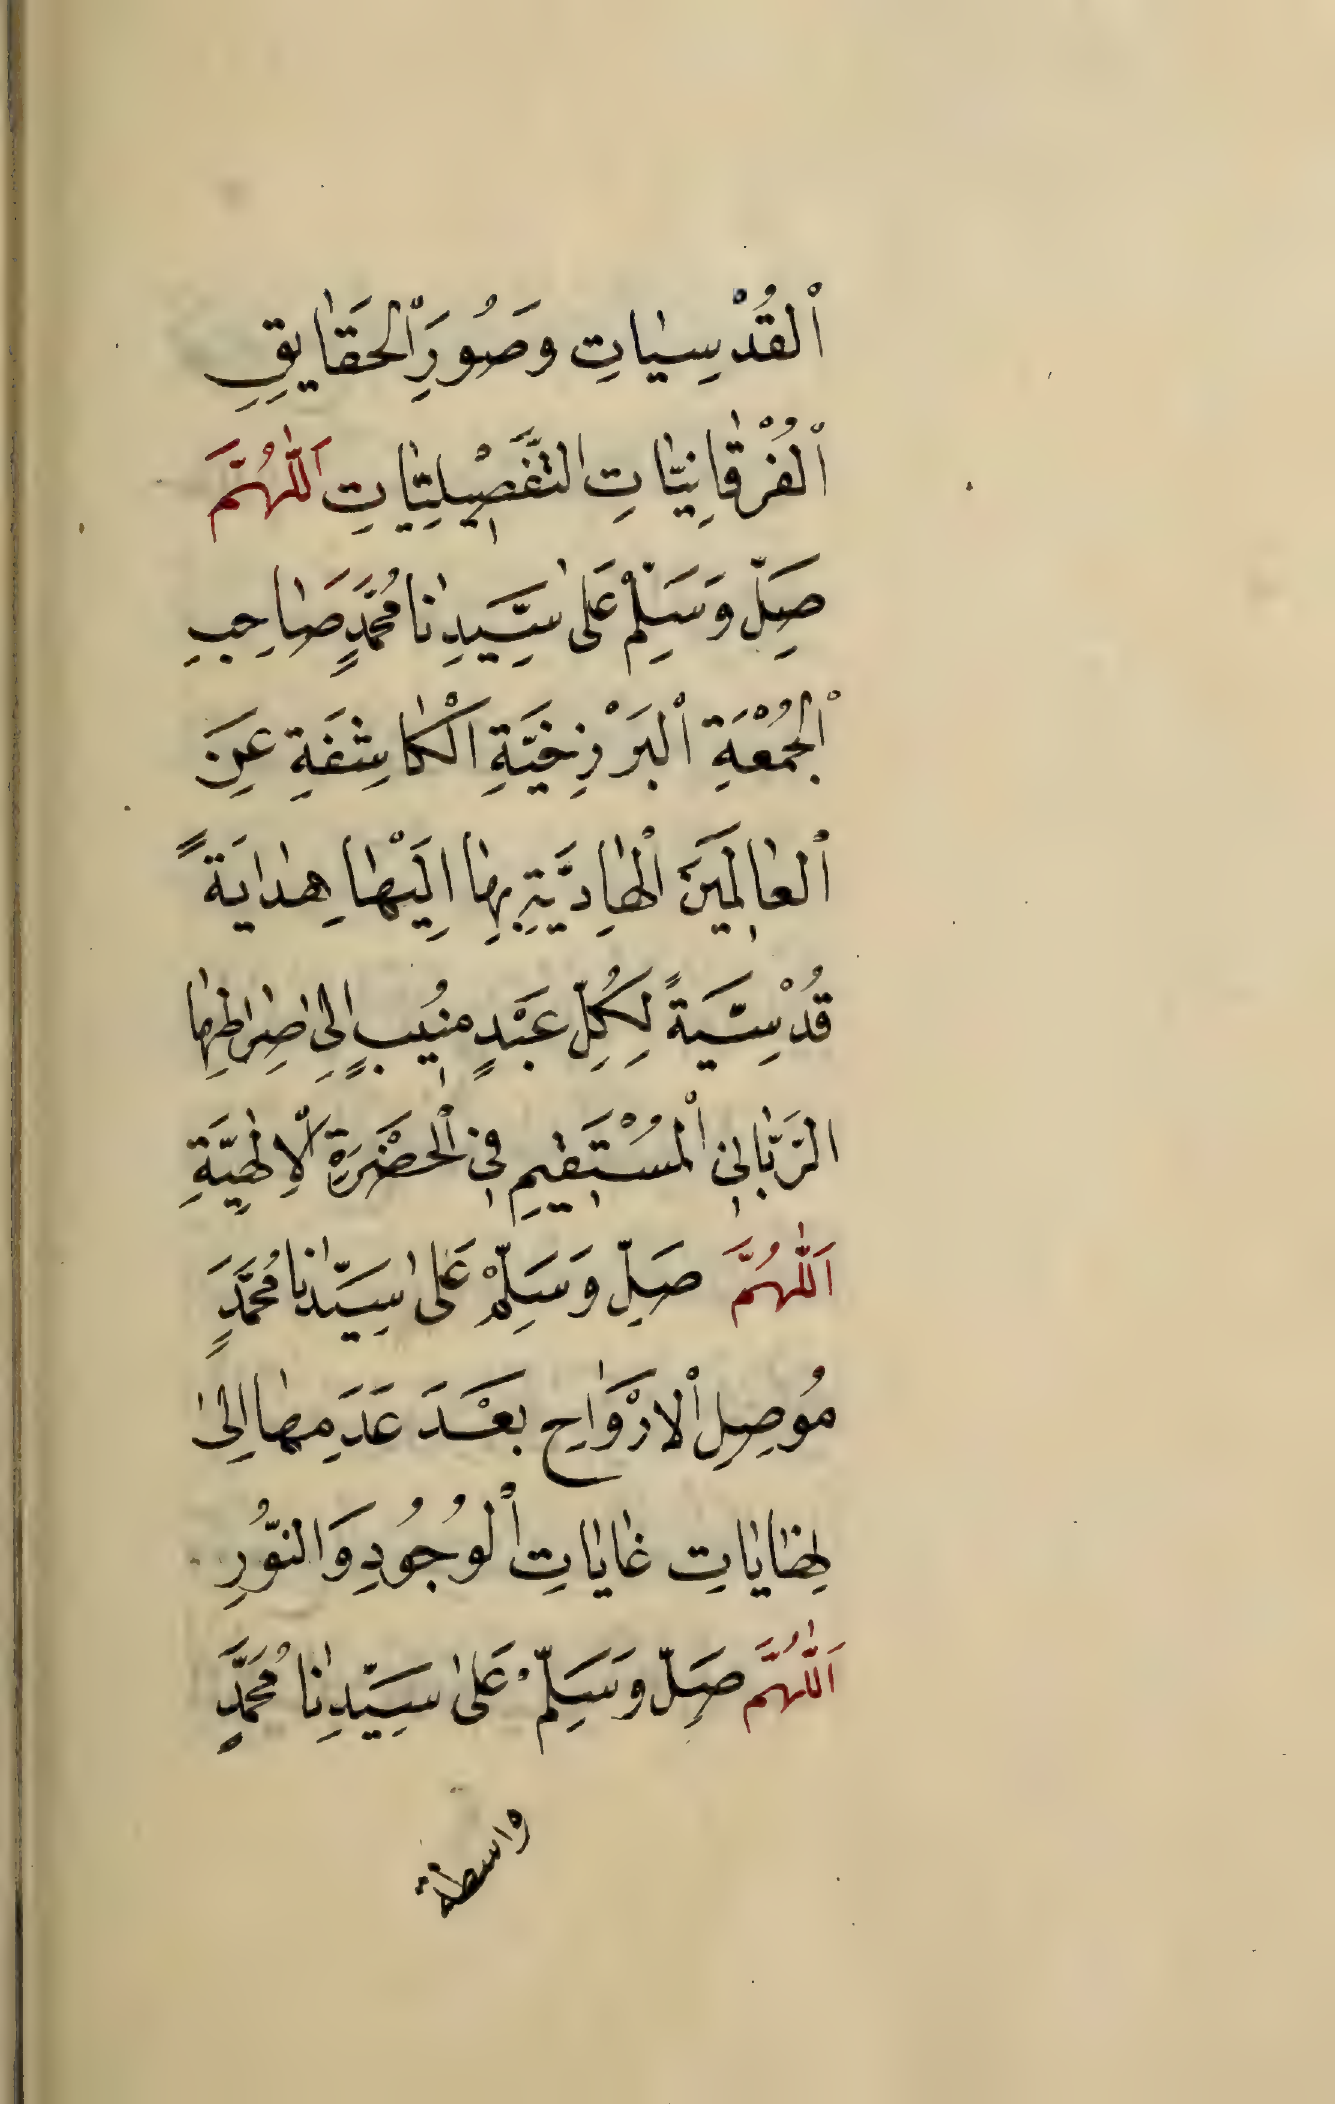 اَلْقُدْسِيٰاتِ وَصُوَرِ اَلْحَقٰايِقِ
اَلْفُرْقٰانِيّٰاتِ التَّفْصِيٖلِيّٰاتِ اَللّٰهُمَّ
صَلِّ وَسَلِّمْ عَلىٰ سَيِّدِنٰا مُحَمَّدٍ صَاحِبِ
اَلْجُمْعَةِ اَلْبَرْزَخِيَّةِ الْكٰاشِفَةِ عَنِ
اَلْعٰالَمَيٖنَ الْهٰادِيَّةِ بِهٰا اِلَيْهٰا هِدٰايَةً
قُدْسِيَّةً لِكُلِّ عَبْدٍ مُنيٖبٍ اِلىٰ صِرٰاطِهٰا
الرَّبّٰانِيٖ الْمُسْتَقيٖمِ فِيٖ الْحَضْرَةِ اْلاِلٰهِيَّةِ
اَللّٰهُمَّ صَلِّ وَسَلِّمْ عَلىٰ سَيِّدِنٰا مُحَمَّدٍ
مُوصِلِ اْلاَرْوٰاحِ بَعْدَ عَدَمِهٰا اِلىٰ
نِهٰايٰاتِ غٰايٰاتِ اَلْوُجُودِ وَالنُّورِ
اَللّٰهُمَّ صَلِّ وَسَلِّمْ عَلىٰ سَيِّدِنٰا مُحَمَّدٍ
واسطة